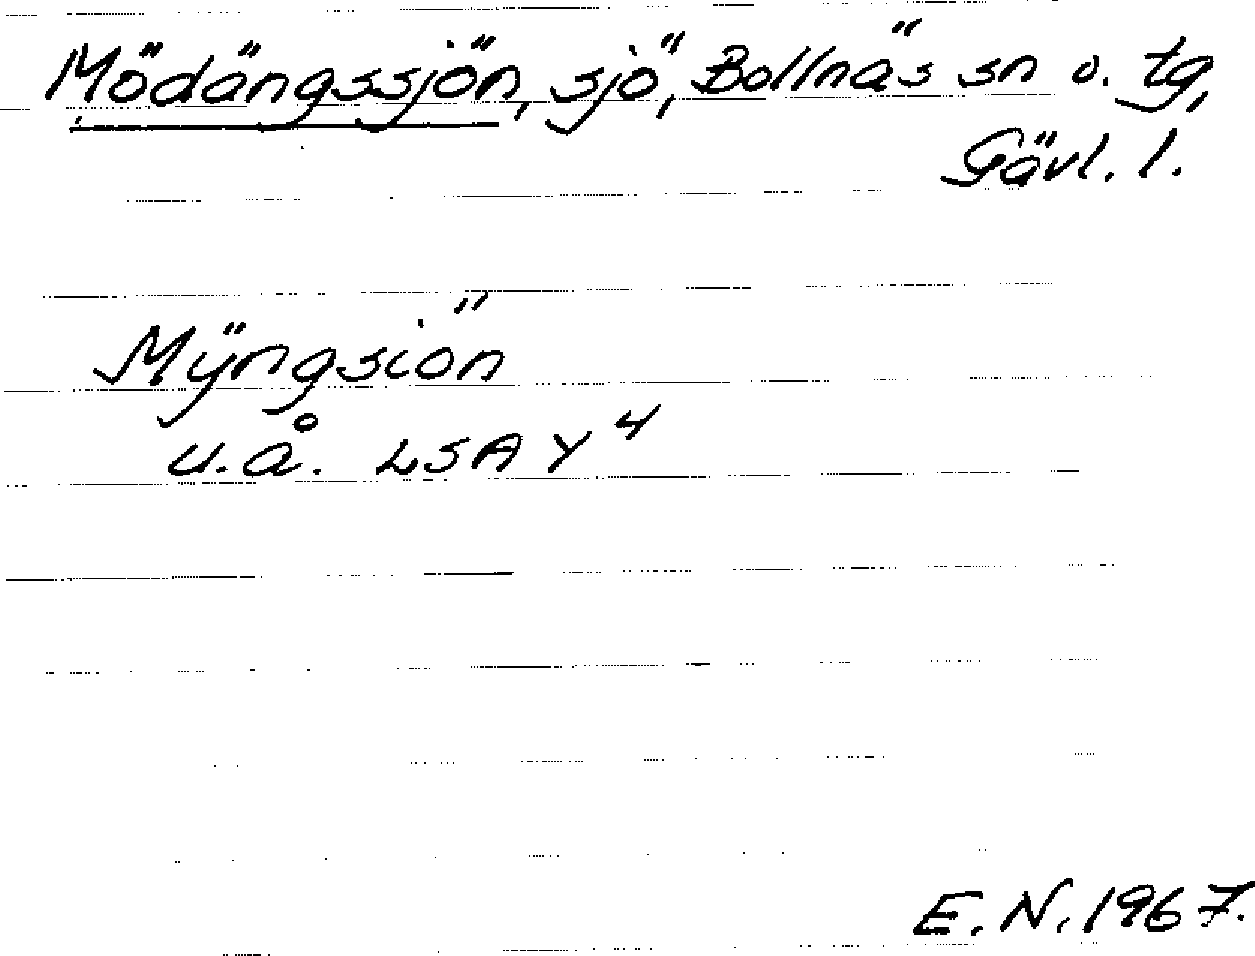 Mödängssjön, sjö, Bollnäs sn o. tg,
Gävl. l.
Mÿngsiön
u.å. LSA Y 4
E.N. 1967.